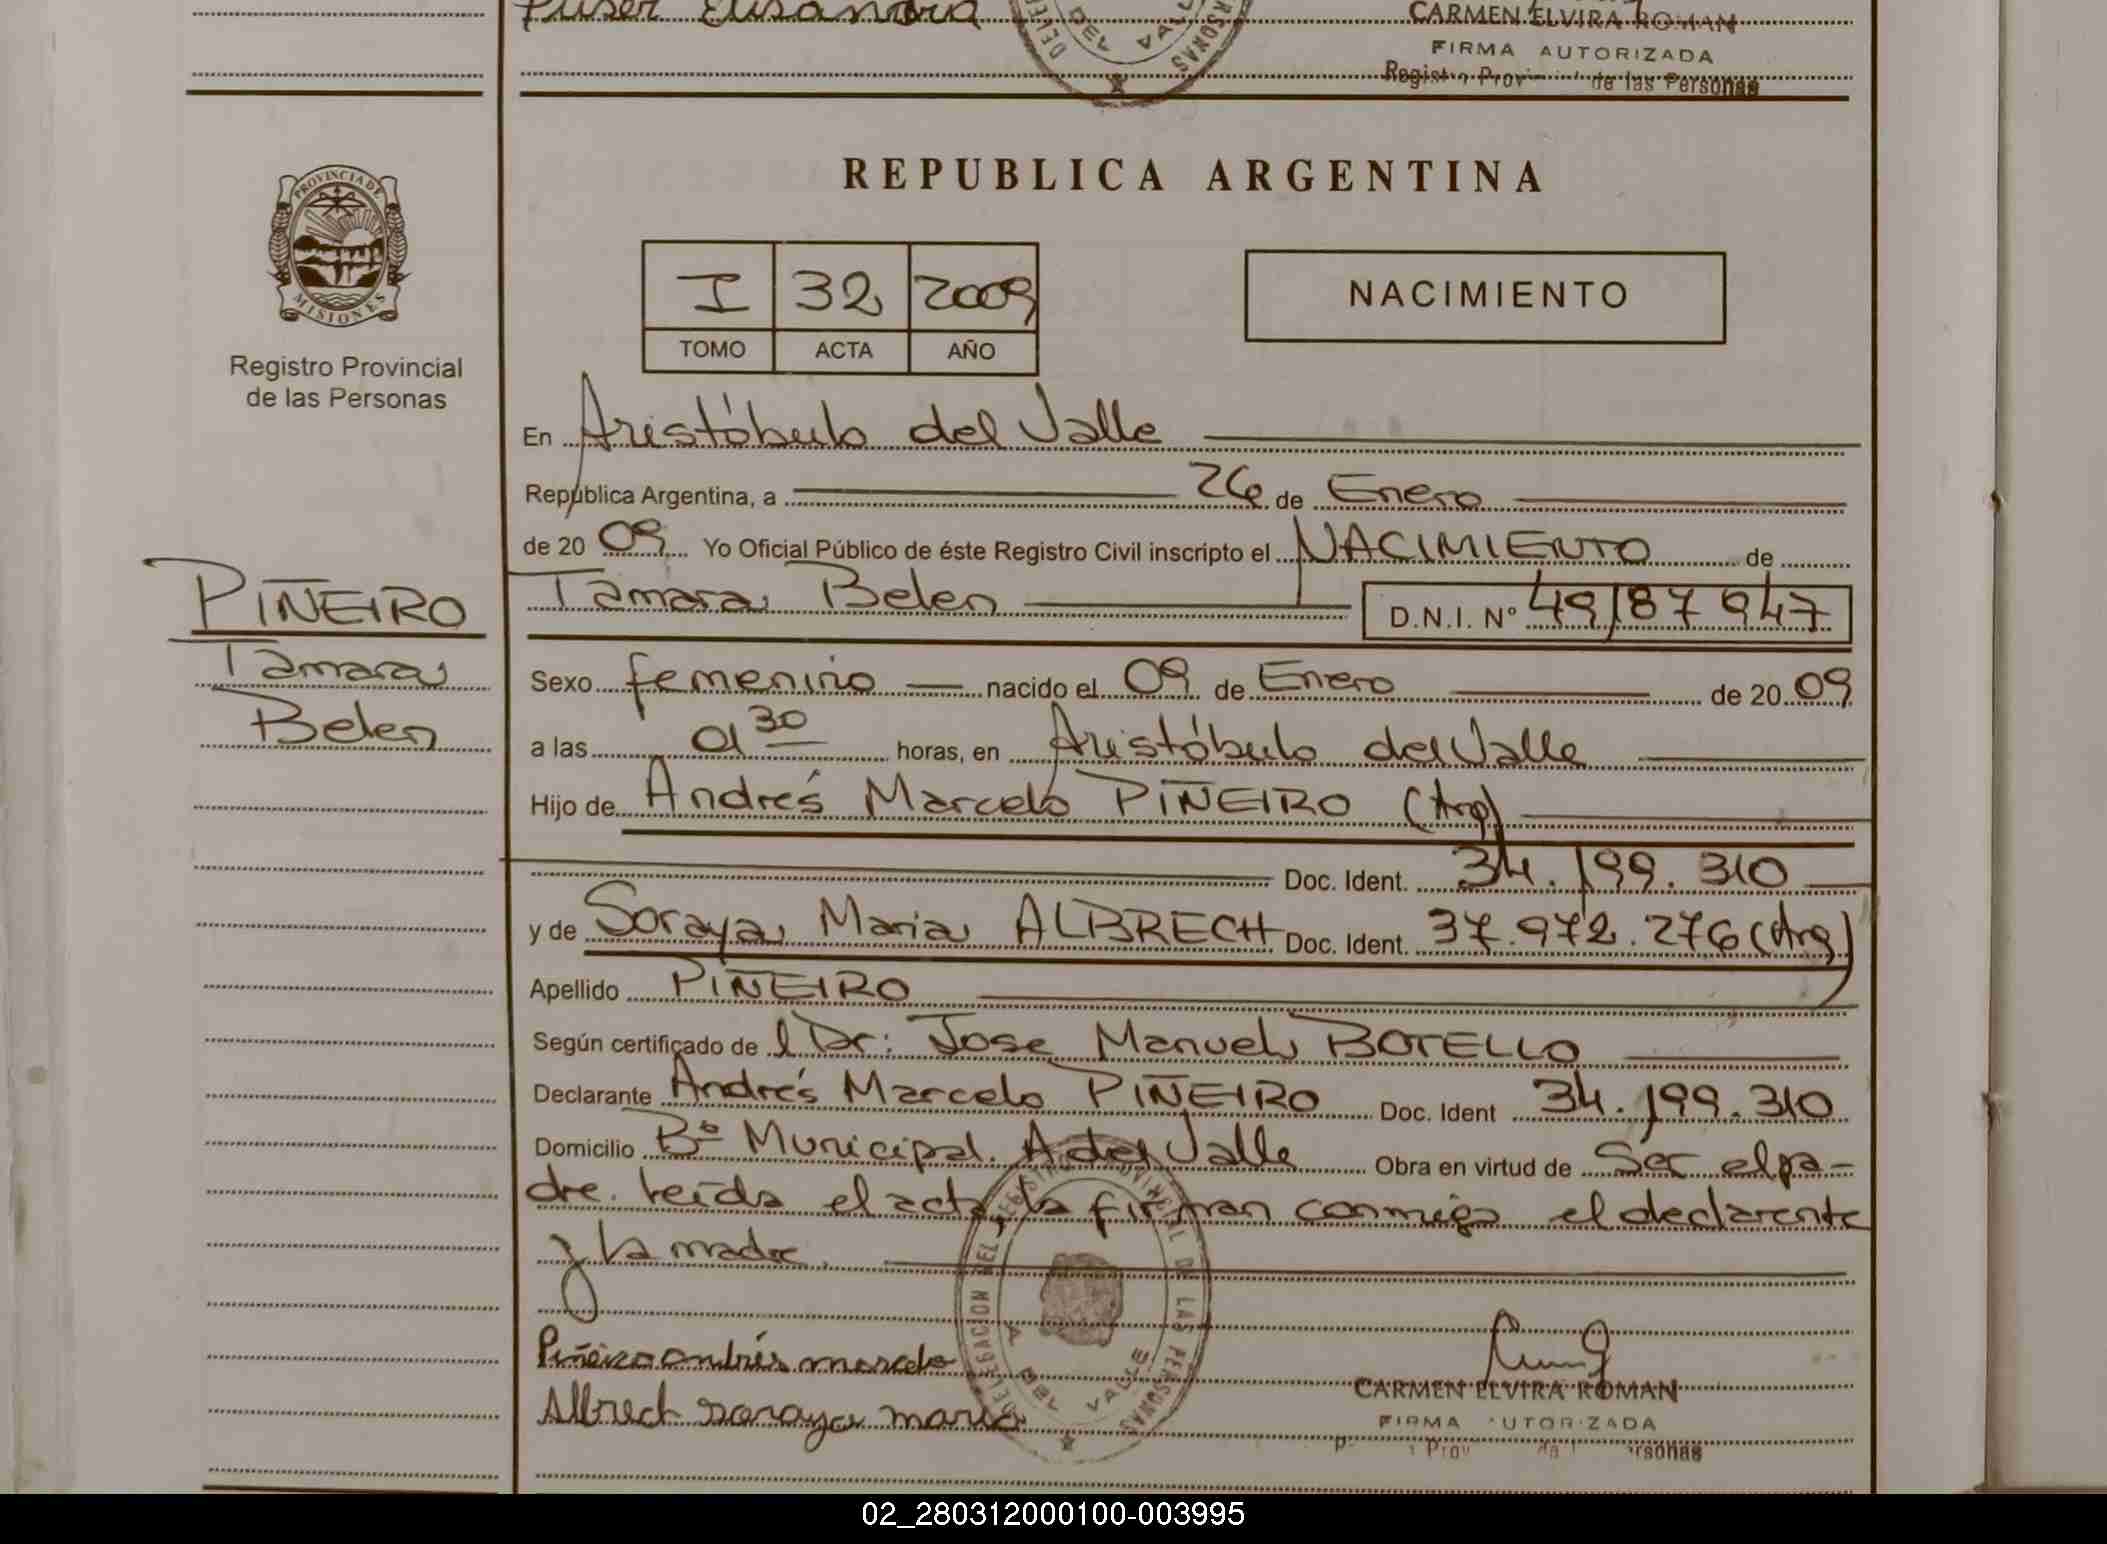 CARMEN ELVIRA ROMAN
FIRMA AUTORIZADA
Registro Provincial de las Personas
DEL VALLE
PERSONAS
REPUBLICA ARGENTINA
PROVINCIA DE MISIONES
Registro Provincial
de las Personas
I 32 2009
TOMO ACTA AÑO
NACIMIENTO
En Aristóbulo del Valle
República Argentina, a 26 de Enero
de 20 09 Yo Oficial Público de éste Registro Civil inscripto el NACIMIENTO de
Tamara Belen D.N.I. Nº 49187947
PIÑEIRO
Tamara
Belen
Sexo femenino nacido el 09 de Enero de 20 09
a las 01 30 horas, en Aristóbulo del Valle
Hijo de Andrés Marcelo PIÑEIRO (Arg)
Doc. Ident. 34.199.310
y de Soraya Maria ALBRECH Doc. Ident. 37.972.276 (Arg)
Apellido PIÑEIRO
Según certificado de l Dr: Jose Manuel BOTELLO
Declarante Andrés Marcelo PIÑEIRO Doc. Ident 34.199.310
Domicilio Bº Municipal. A del Valle Obra en virtud de Ser el pa-
dre. Leída el acta, la firman conmigo el declarante
y la madre.
Piñeiro andrés marcelo
Albrech soraya maria
DELEGACION DEL REGISTRO PROVINCIAL DE LAS PERSONAS
A DEL VALLE
CARMEN ELVIRA ROMAN
FIRMA AUTORIZADA
02_280312000100-003995